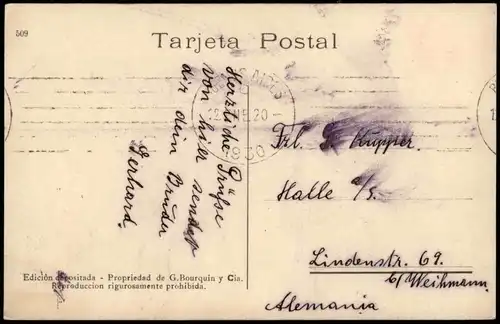 509
Tarjeta Postal
Herzliche Grüße
von hier sendet
dir dein Bruder
Gerhard.
1930
Frl. Küpper.
Halle a/S.
Lindenstr. 69.
b/ Weihmann.
Alemania
Edición depositada - Propiedad de G. Bourquin y Cía.
Reproduccion rigurosamente prohibida.